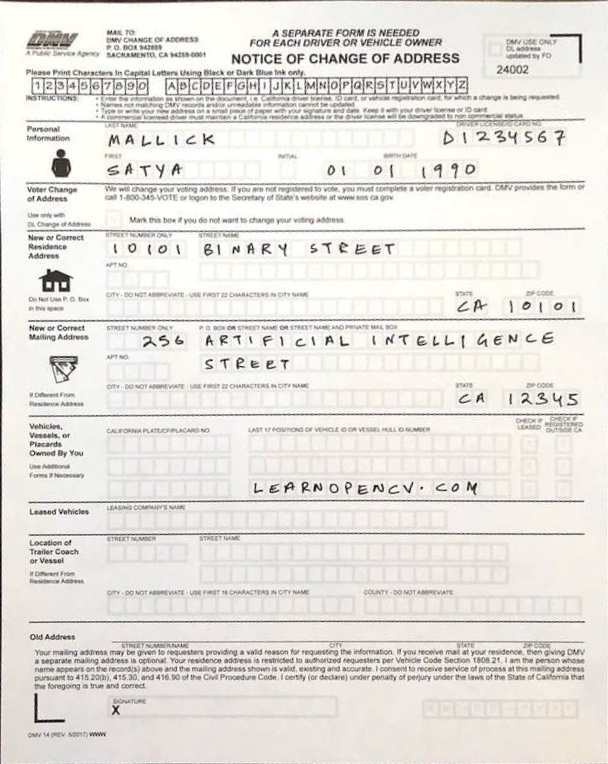 DMV
A Public Service Agency
MAIL TO:
DMV CHANGE OF ADDRESS
P. O. BOX 942859
SACRAMENTO, CA 94259-0001
A SEPARATE FORM IS NEEDED
FOR EACH DRIVER OR VEHICLE OWNER
NOTICE OF CHANGE OF ADDRESS
DMV USE ONLY
DL address
updated by FO
24002
Please Print Characters In Capital Letters Using Black or Dark Blue Ink only.
1 2 3 4 5 6 7 8 9 0 A B C D E F G H I J K L M N O P Q R S T U V W X Y Z
INSTRUCTIONS:
• Enter the information as shown on the document, i.e. California driver license, ID card, or vehicle registration card, for which a change is being requested
• Names not matching DMV records and/or unreadable information cannot be updated.
• Type or write your new address on a small piece of paper with your signature and date. Keep it with your driver license or ID card.
• A commercial licensed driver must maintain a California residence address or the driver license will be downgraded to non commercial status.
Personal
Information
LAST NAME
DRIVER LICENSE/ID CARD NO.
MALLICK D1234567
FIRST INITIAL BIRTH DATE
SATYA 01 01 1990
Voter Change
of Address
We will change your voting address. If you are not registered to vote, you must complete a voter registration card. DMV provides the form or
call 1-800-345-VOTE or logon to the Secretary of State's website at www.sos.ca.gov.
Use only with
DL Change of Address
Mark this box if you do not want to change your voting address.
New or Correct
Residence
Address
STREET NUMBER ONLY STREET NAME
10101 BINARY STREET
APT NO.
Do Not Use P. O. Box
in this space
CITY - DO NOT ABBREVIATE - USE FIRST 22 CHARACTERS IN CITY NAME STATE ZIP CODE
CA 10101
New or Correct
Mailing Address
STREET NUMBER ONLY P. O. BOX OR STREET NAME OR STREET NAME AND PRIVATE MAIL BOX
256 ARTIFICIAL INTELLIGENCE
APT NO.
STREET
If Different From
Residence Address
CITY - DO NOT ABBREVIATE - USE FIRST 22 CHARACTERS IN CITY NAME STATE ZIP CODE
CA 12345
Vehicles,
Vessels, or
Placards
Owned By You
CALIFORNIA PLATE/CF/PLACARD NO. LAST 17 POSITIONS OF VEHICLE ID OR VESSEL HULL ID NUMBER
CHECK IF
LEASED
CHECK IF
REGISTERED
OUTSIDE CA
Use Additional
Forms If Necessary
LEARNOPENCV.COM
Leased Vehicles
LEASING COMPANY'S NAME
Location of
Trailer Coach
or Vessel
STREET NUMBER STREET NAME
If Different From
Residence Address
CITY - DO NOT ABBREVIATE - USE FIRST 16 CHARACTERS IN CITY NAME COUNTY - DO NOT ABBREVIATE
Old Address
STREET NUMBER/NAME CITY STATE ZIP CODE
Your mailing address may be given to requesters providing a valid reason for requesting the information. If you receive mail at your residence, then giving DMV
a separate mailing address is optional. Your residence address is restricted to authorized requesters per Vehicle Code Section 1808.21. I am the person whose
name appears on the record(s) above and the mailing address shown is valid, existing and accurate. I consent to receive service of process at this mailing address
pursuant to 415.20(b), 415.30, and 416.90 of the Civil Procedure Code. I certify (or declare) under penalty of perjury under the laws of the State of California that
the foregoing is true and correct.
SIGNATURE
X
DMV 14 (REV. 5/2017) WWW